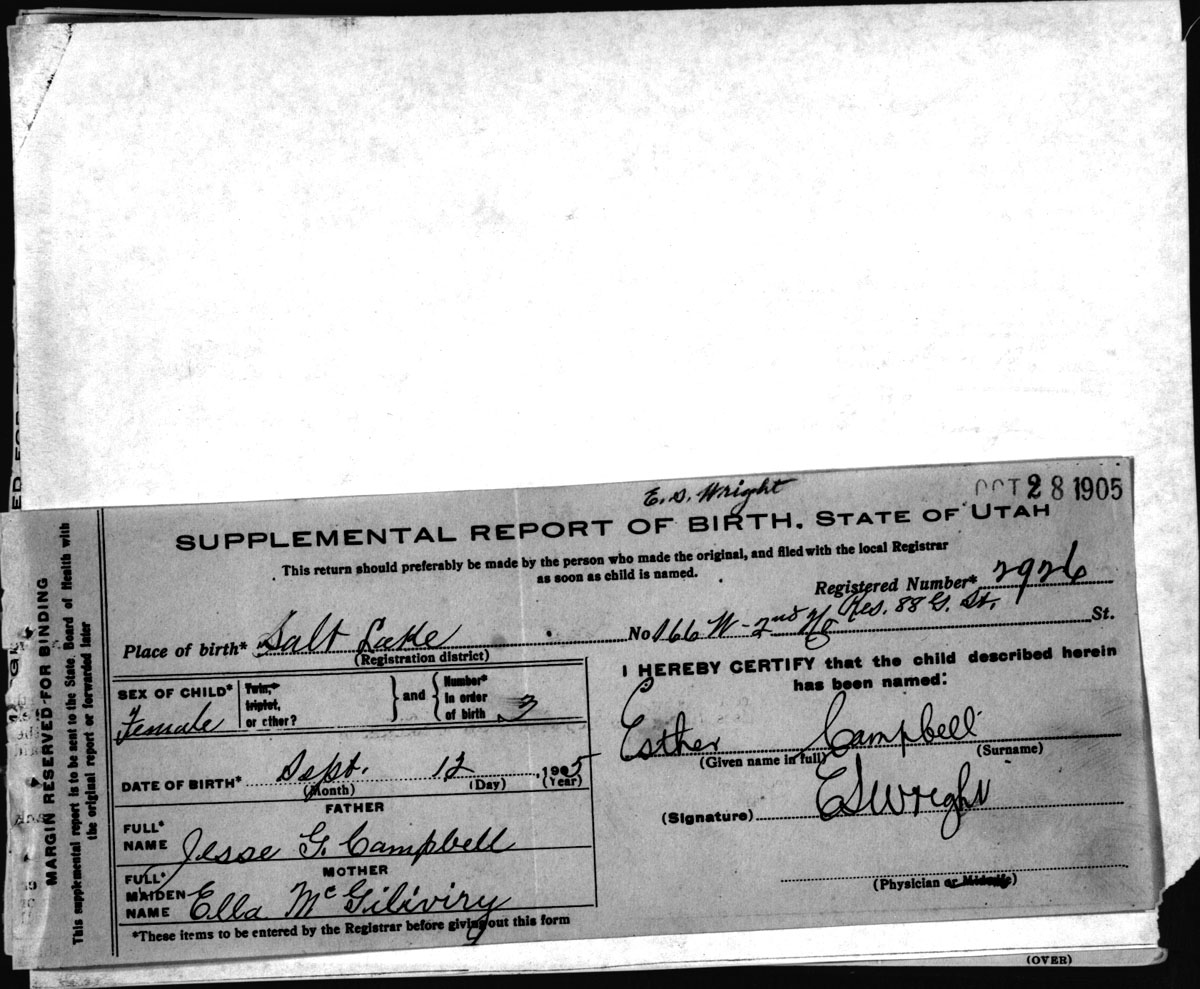 E. S. Wright
OCT 28 1905
SUPPLEMENTAL REPORT OF BIRTH. STATE OF UTAH
This return should preferably be made by the person who made the original, and filed with the local Registrar
as soon as child is named.
Registered Number* 2926
Place of birth* Salt Lake No 166 W-2nd No Res. 88 G. St. St.
(Registration district)
SEX OF CHILD* Female
Twin,* triplet, or other?
and
Number* in order of birth 3
DATE OF BIRTH* Sept. 12, 1905
(Month) (Day) (Year)
FATHER
FULL* NAME Jesse G. Campbell
MOTHER
FULL* MAIDEN NAME Ella McGiliviry
*These items to be entered by the Registrar before giving out this form
I HEREBY CERTIFY that the child described herein
has been named:
Esther Campbell
(Given name in full) (Surname)
(Signature) E S Wright
(Physician or Midwife)
(OVER)
MARGIN RESERVED FOR BINDING
This supplemental report is to be sent to the State Board of Health with
the original report or forwarded later